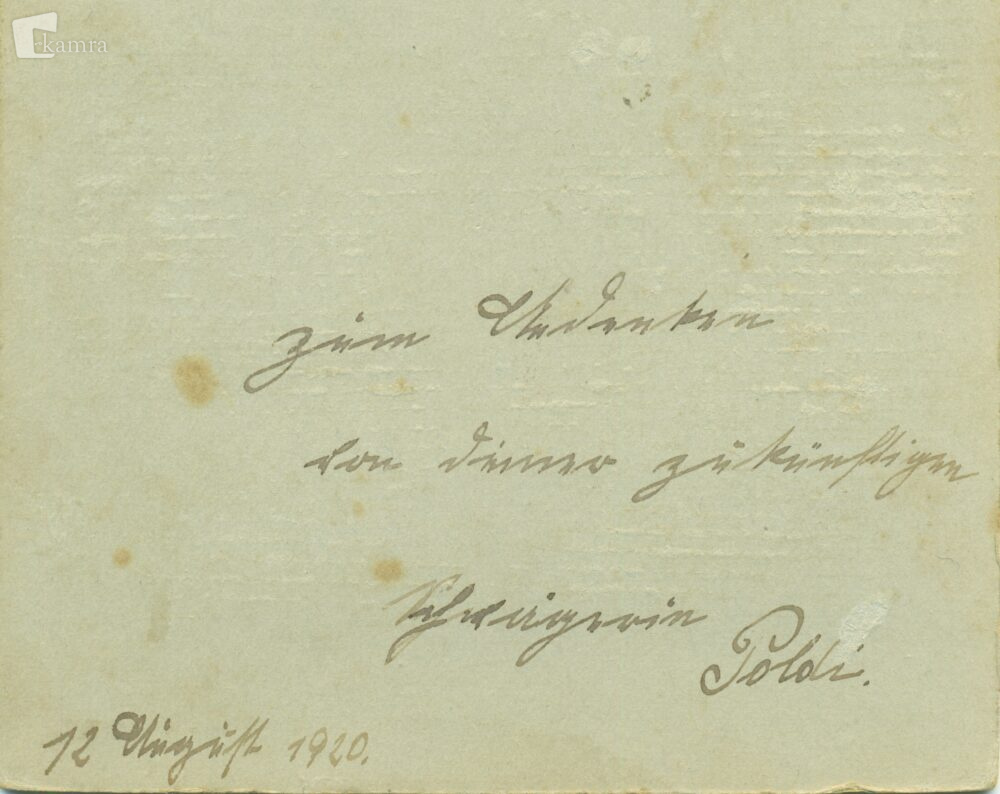 kamra
zum Andenken
von deiner zukünftigen
Schwägerin
Poldi.
12 August 1920.